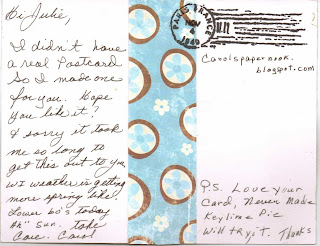 Hi Julie,
I didn't have
a real Postcard
So I made one
for you. Hope
you like it?
& sorry it took
me so long to
get this out to you,
WI weather is getting
more spring like.
Lower 60's today
Ah" Sun. Take
Care. Carol
PARIS, FRANCE
NOV
1949
Carolspaperbook.
blogspot.com
P.S. Love your
Card, Never Made
Keylime Pie
Will try it. Thanks